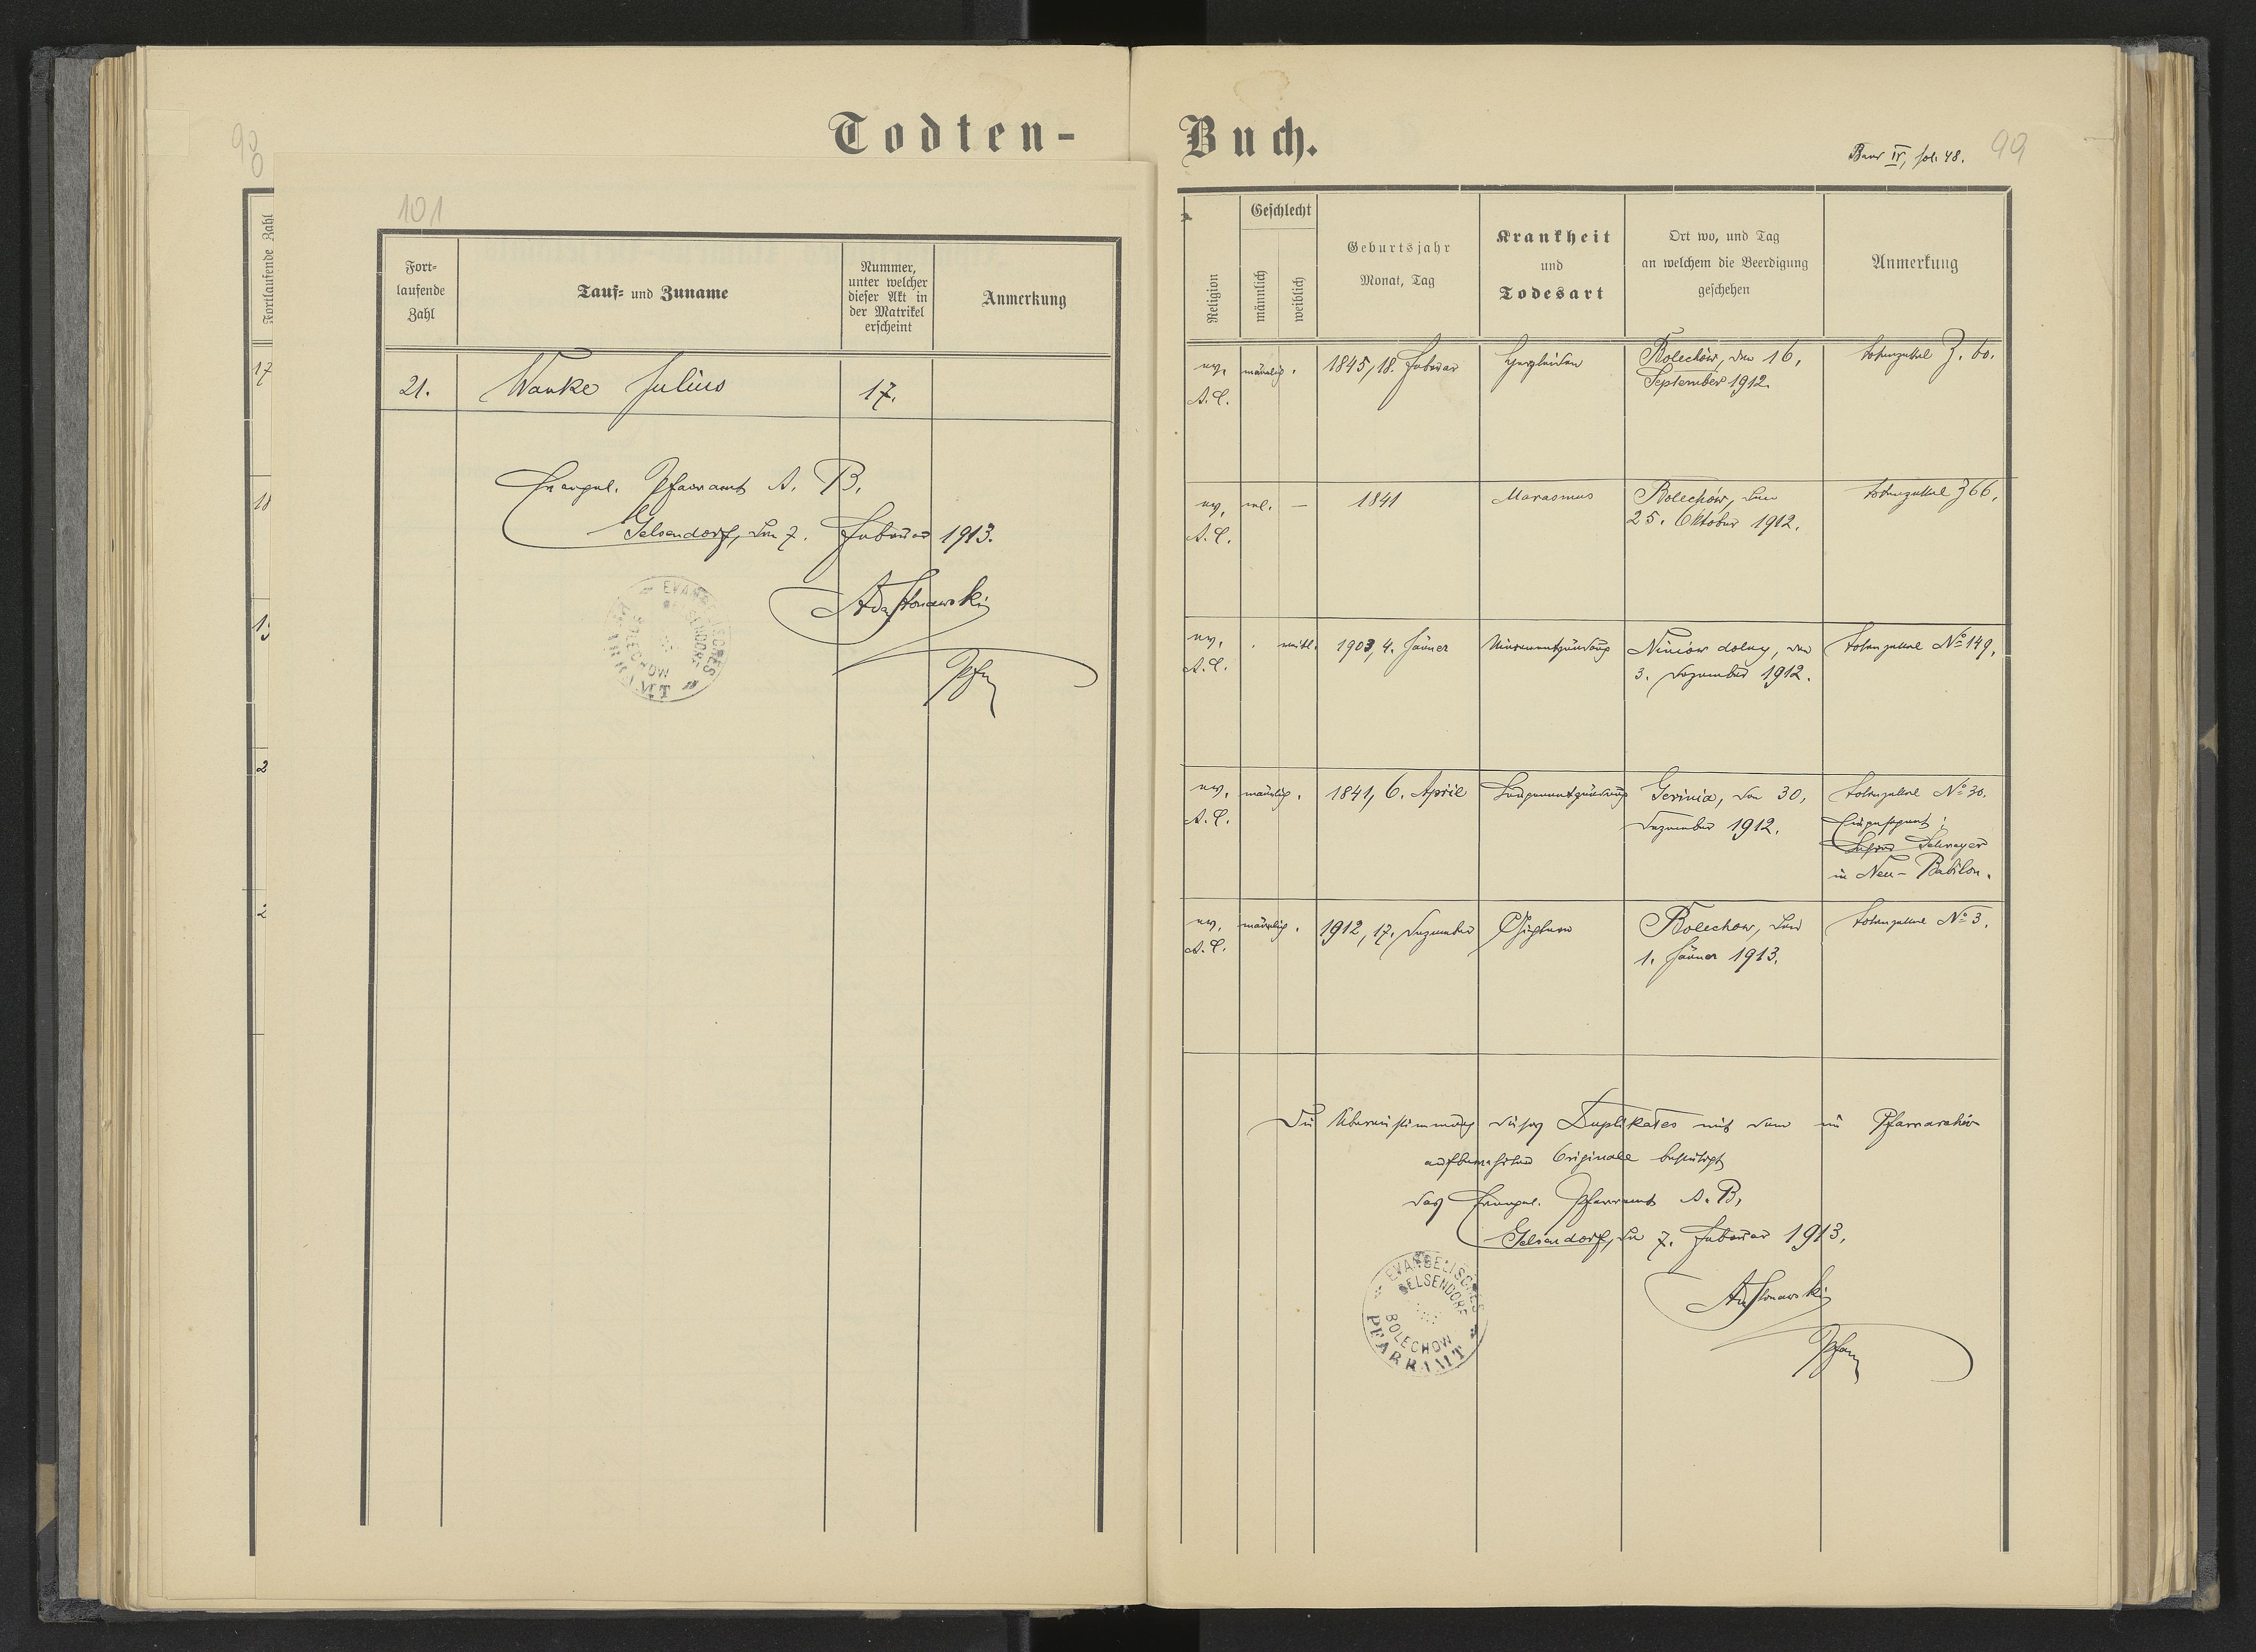 Todten-
90
101
Fortlaufende Zahl
17
18
19
2
2
Fort-
laufende
Zahl
Tauf- und Zuname
Nummer,
unter welcher
dieser Akt in
der Matrikel
erscheint
Anmerkung
21.
Wanke Julius
17.
Evangel. Pfarramt A. B.
Gelsendorf, den 7. Februar 1913.
EVANGELISCHES
GELSENDORF
BOLECHOW
PFARRAMT
Pfr
Buch.
Band IV, fol. 48.
99
Religion
Geschlecht
männlich
weiblich
Geburtsjahr
Monat, Tag
Krankheit
und
Todesart
Ort wo, und Tag
an welchem die Beerdigung
geschehen
Anmerkung
ev.
A. C.
männlich.
1845, 18. Februar
Herzleiden
Bolechów, den 16.
September 1912.
Totenzettel Z. 60.
ev.
A. C.
ml.
—
1841
Marasmus
Bolechów, den
25. Oktober 1912.
Totenzettel Z 66.
ev.
A. C.
weibl.
1903, 4. Jänner
Nierenentzündung
Niniów dolny, den
3. Dezember 1912.
Totenzettel № 149.
ev.
A. C.
männlich.
1841, 6. April
Lungenentzündung
Gerinia, den 30.
Dezember 1912.
Totenzettel № 30.
Eingesegnet:
Lehrer Schweyer
in Neu-Babilon.
ev.
A. C.
männlich.
1912, 17. Dezember
Bolechow, den
1. Jänner 1913.
Totenzettel № 3.
Die Übereinstimmung dieses Duplikates mit dem im Pfarrarchiv
aufbewahrten Originale bestätigt
das Evangel. Pfarramt A. B.
Gelsendorf, den 7. Februar 1913.
EVANGELISCHES
GELSENDORF
BOLECHOW
PFARRAMT
Pfarr